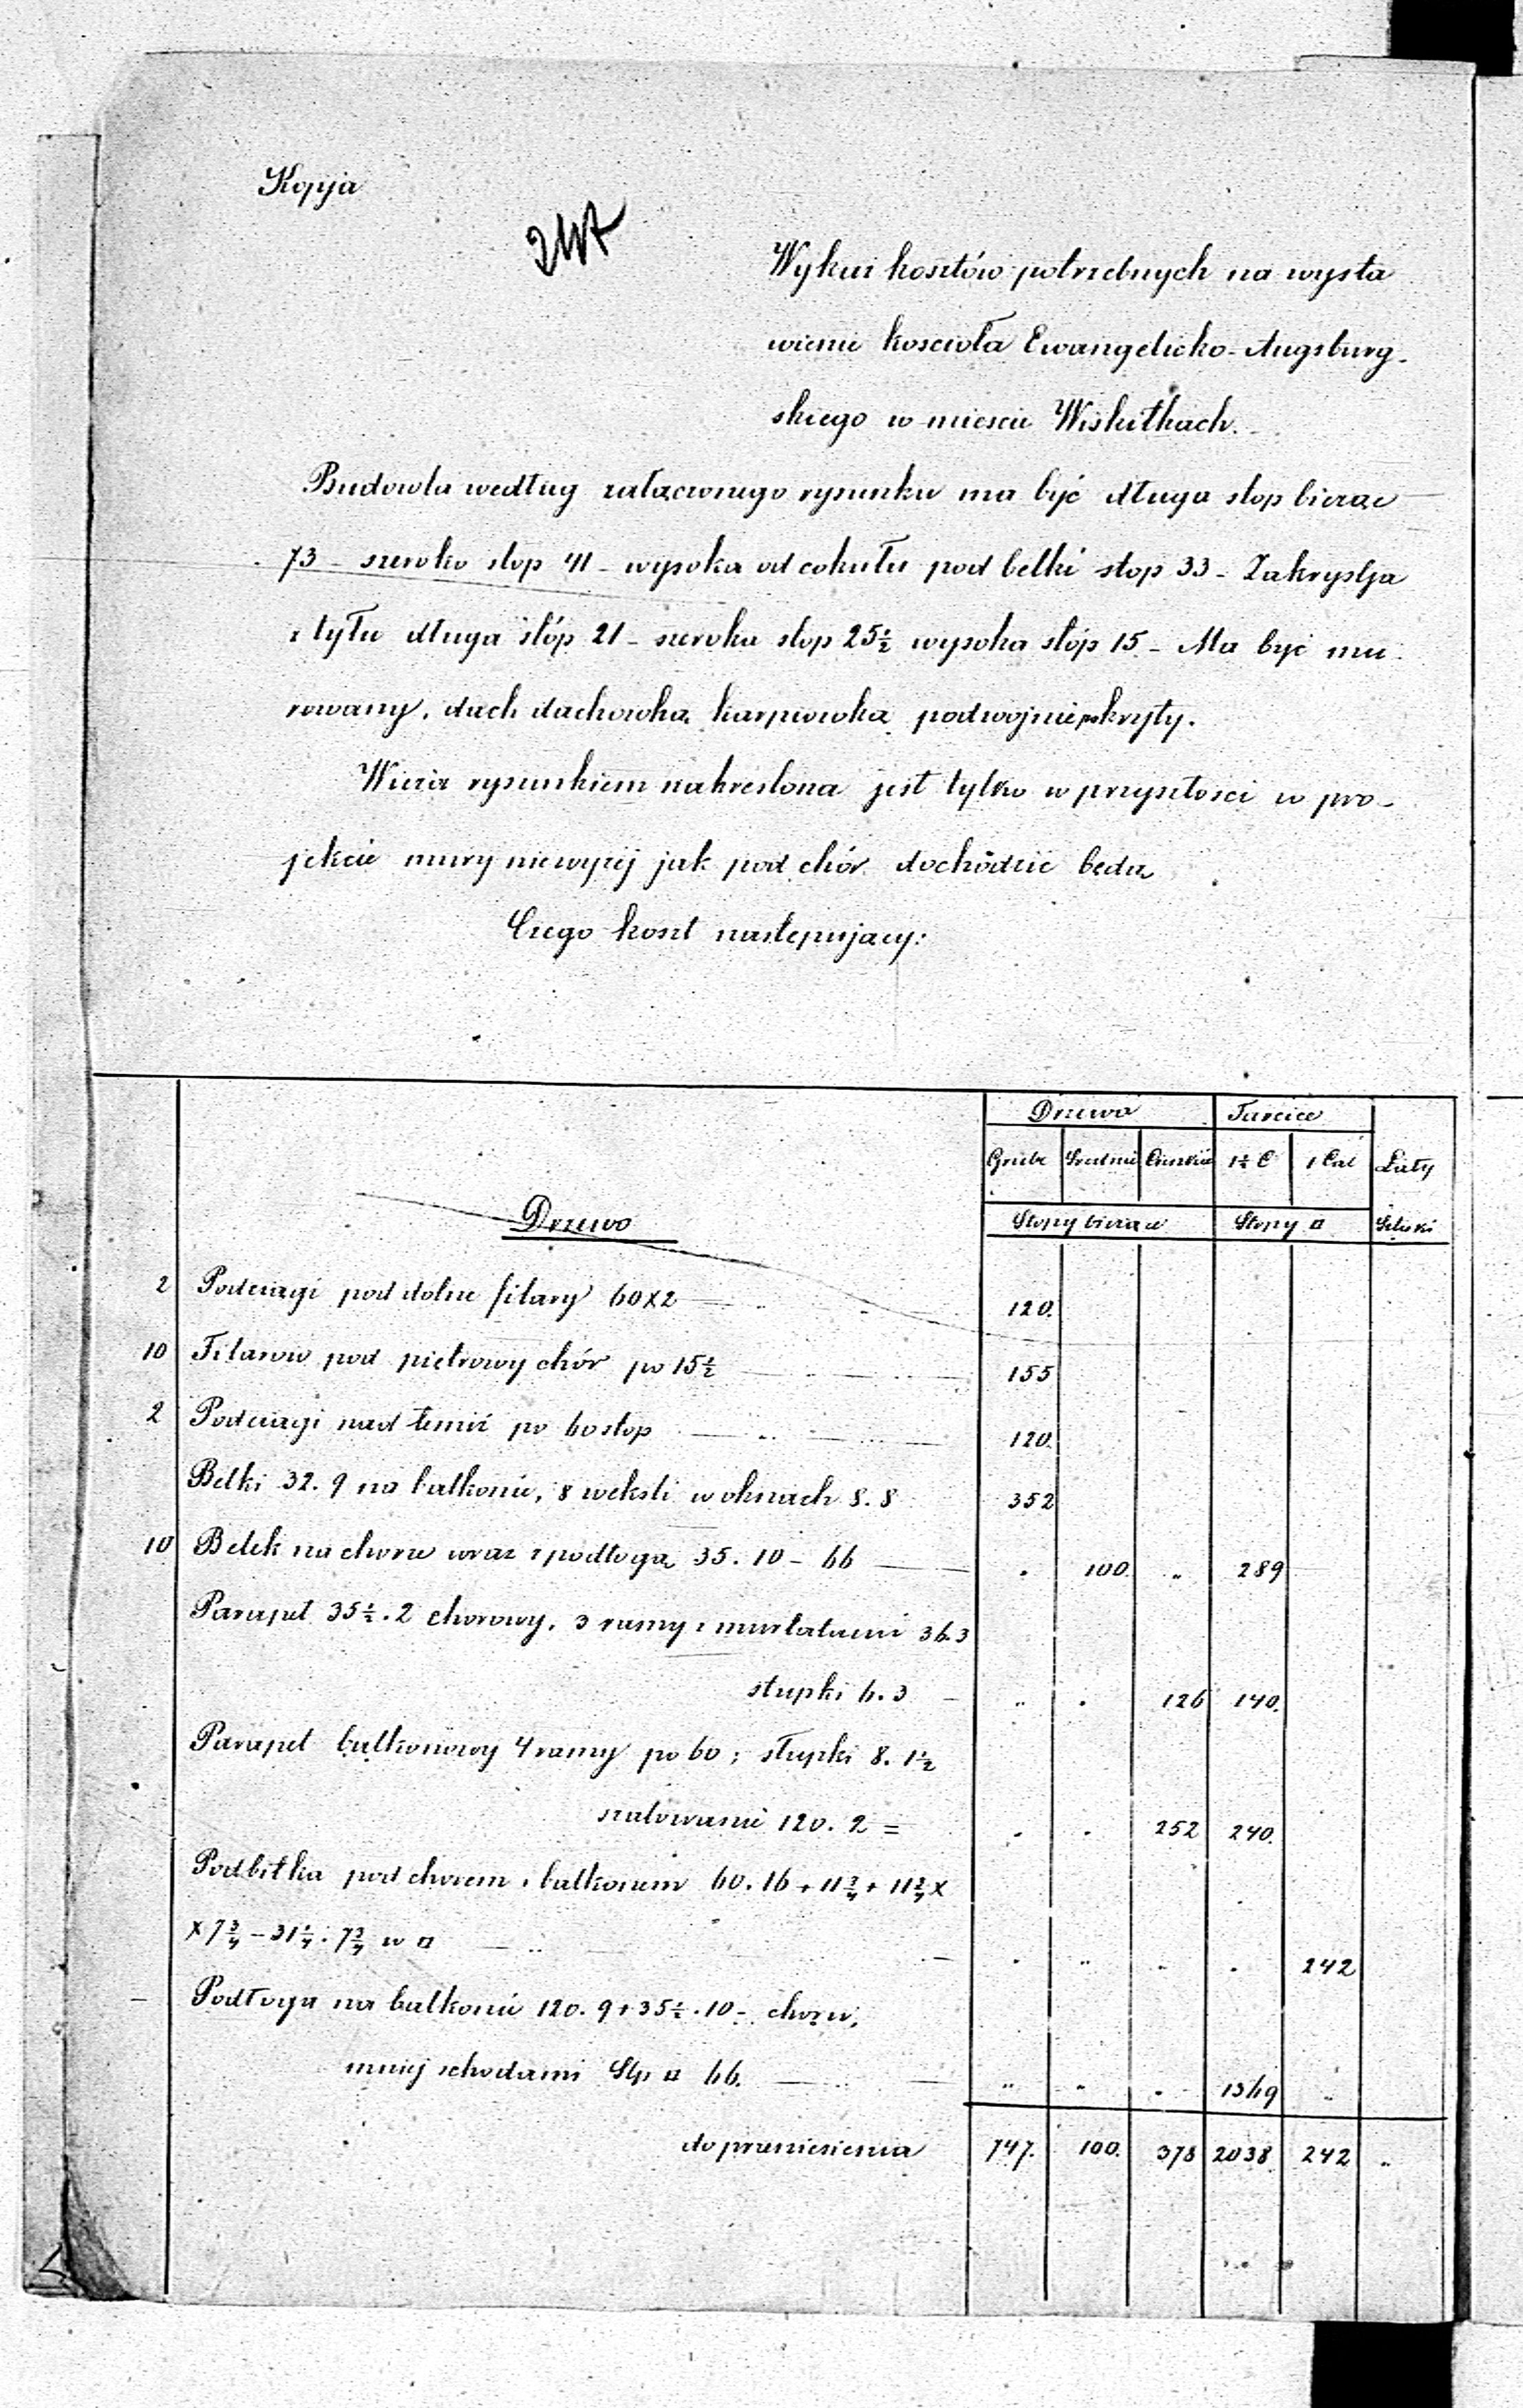 Kopja
247
Wykaz kosztów potrzebnych na wysta
wienie koscioła Ewangelicko-Augsburg-
skiego w miescie Wiskitkach.
Budowla według załaczonego rysunku ma być długa stop bieżac
73 - szeroko stop 41 - wysoka od cokułu pod belki stop 33 - Zakrystja
z tyłu długa stóp 21 - szeroka stop 25½ wysoka stóp 15 - Ma być mu-
rowany, dach dachowka karpiowka podwojnie pokryty.
Wieża rysunkiem nakreslona jest tylko w przyszłosci w pro-
jekcie mury niewyżej jak pod chór dochódzic beda
Czego koszt nastepujacy:
Drzewo Tarcice
Grube Srednie Cienkie 1½ C 1 Cal Łaty
Stopy bieżace Stopy □ Sztuki
Drzewo
2 Podciagi pod dolne filary 60x2 120.
10 Filarow pod pietrowy chór po 15½ 155
2 Podciagi nad temiż po 60 stop 120.
Belki 32. 9 na balkonie, 8 weksli w oknach 8. 8 352
10 Belek na chorze wraz z podłoga 35. 10 - 66 . 100. „ 289
Parapet 35½. 2 chorowy, 3 ramy z murłatami 36.3
słupki 6. 3 „ . 126 140.
Parapet balkonowy 4 ramy po 60; słupki 8. 1½
szalowanie 120. 2 = . . 252 240.
Podbitka pod chorem i balkonem 60. 16 + 11¾ + 11¾ x
x 7¾ - 31¼. 7¾ w □ . „ „ . 242
Podłoga na balkonie 120. 9 + 35½. 10 - chorze,
mniej schodami Stp □ 66. „ „ . 1369 „
do przeniesienia 747. 100. 378 2038 242 „